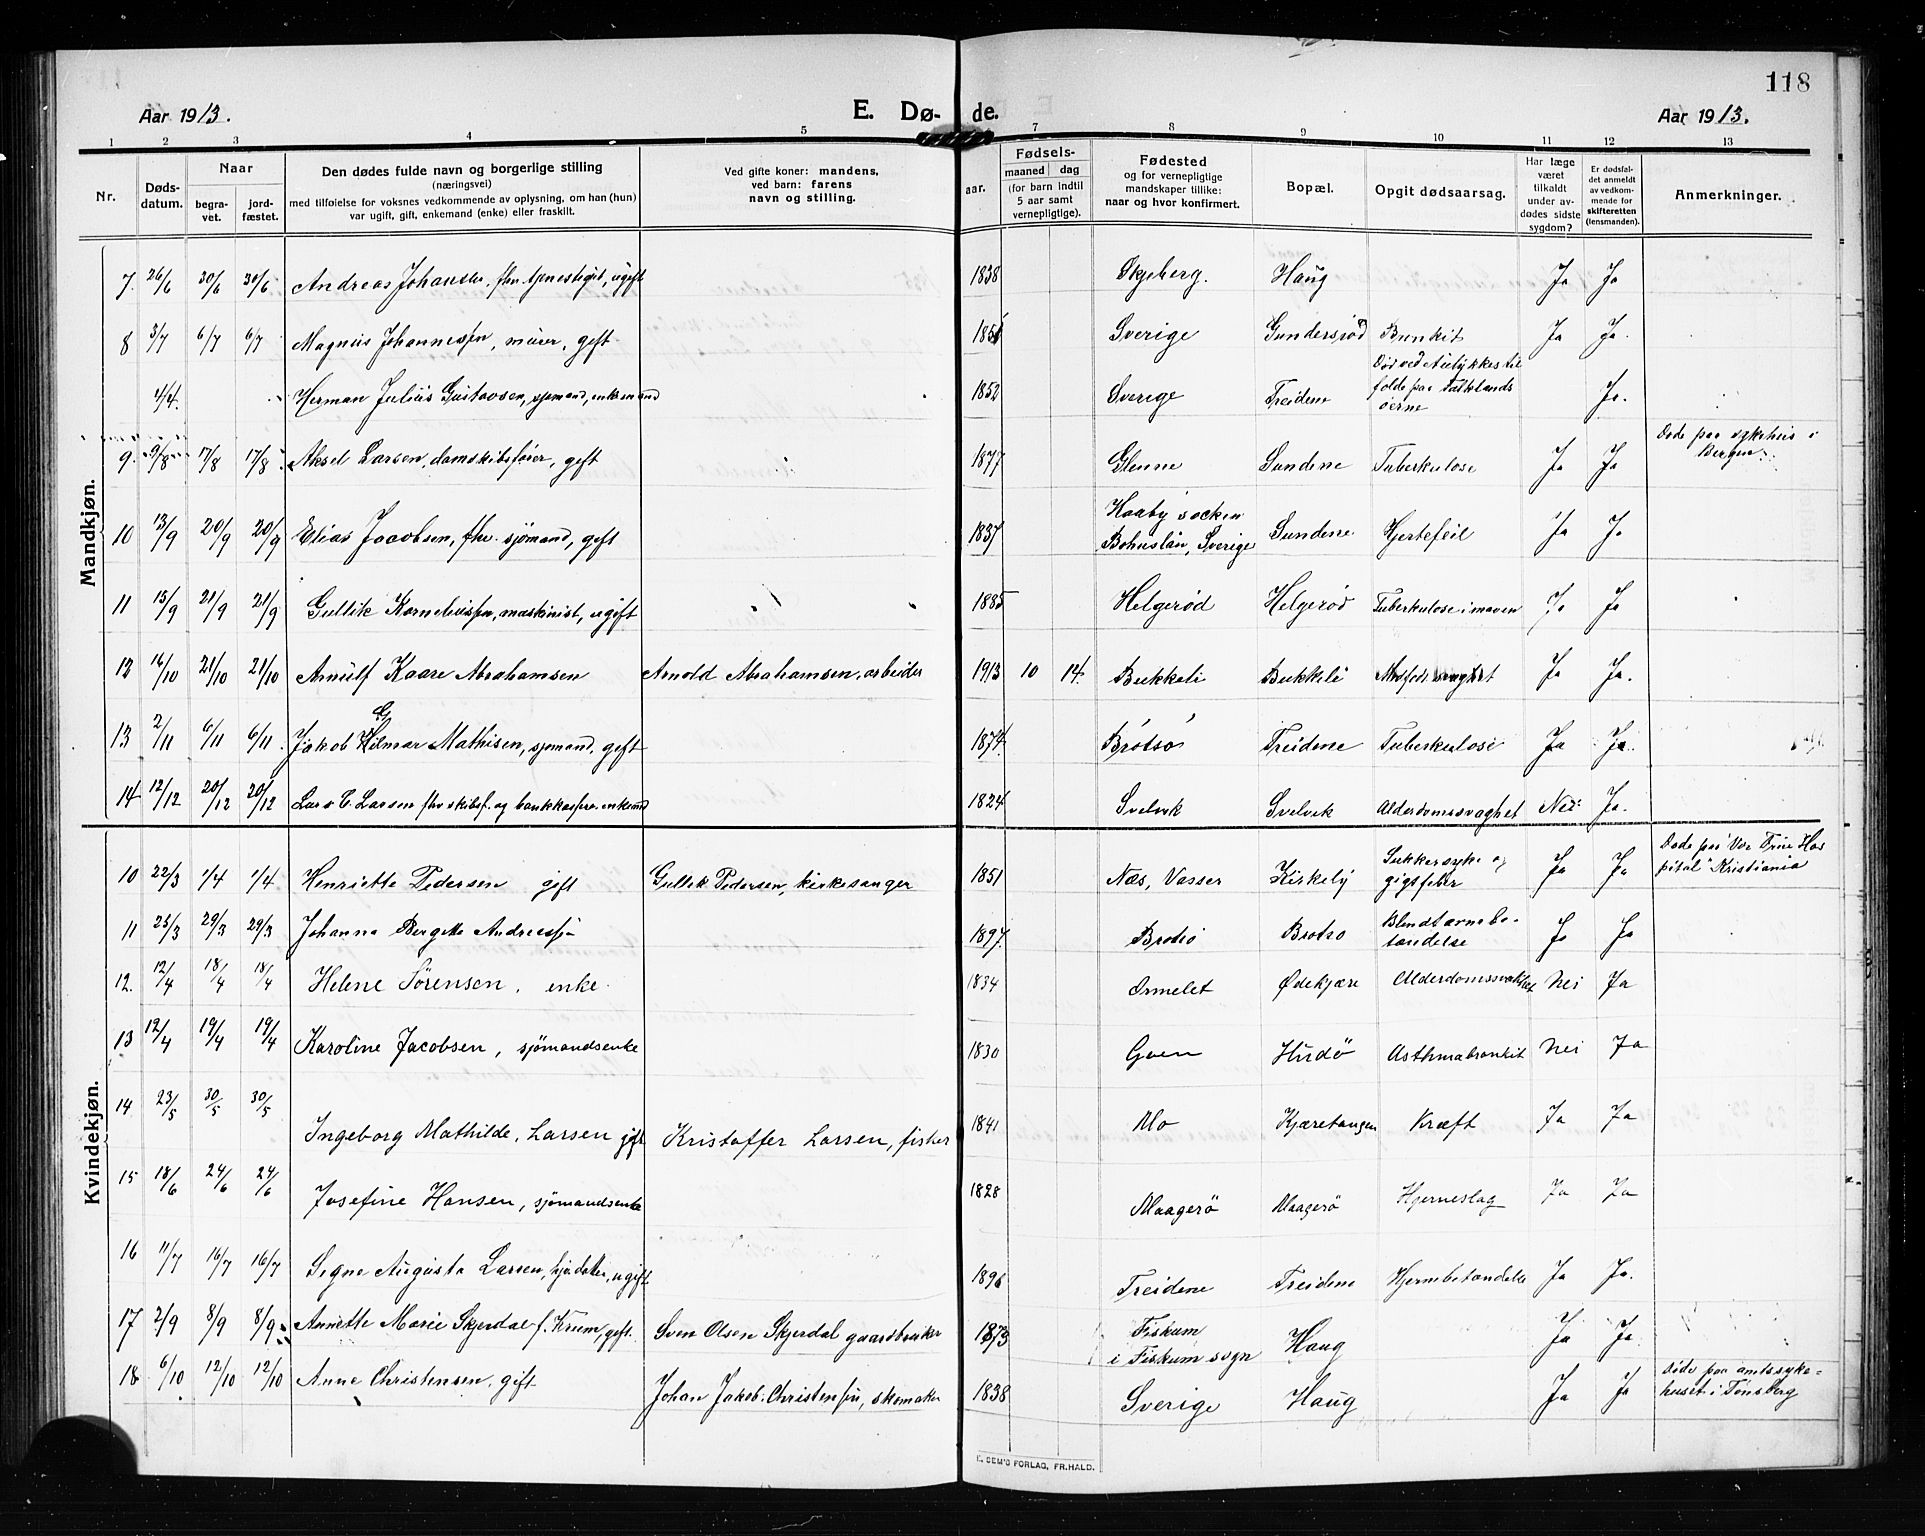 118
Aar 1913.
E. Dø- de.
Aar 1913.
1 2 3 4 5 7 8 9 10 11 12 13
Nr.
Døds-datum.
Naar
begra-vet.
jord-fæstet.
Den dødes fulde navn og borgerlige stilling
(næringsvei)
med tilføielse for voksnes vedkommende av oplysning, om han (hun)
var ugift, gift, enkemand (enke) eller fraskilt.
Ved gifte koner: mandens,
ved barn: farens
navn og stilling.
aar.
Fødsels-
maaned dag
(for barn indtil
5 aar samt
vernepligtige).
Fødested
og for vernepligtige
mandskaper tillike:
naar og hvor konfirmert.
Bopæl.
Opgit dødsaarsag.
Har læge
været
tilkaldt
under av-
dødes sidste
sygdom?
Er dødsfal-
det anmeldt
av vedkom-
mende for
skifteretten
(lensmanden).
Anmerkninger.
Mandkjøn.
7. 26/6 30/6 30/6 Andreas Johansen, fhv. tjenestegut, ugift 1838 Skjeberg. Haug Ja Ja
8 3/7 6/7 6/7 Magnus Johannessen, murer, gift Sverige Gundersrød Bronkit Ja Ja.
4/4. Herman Julius Gustavsen, sjømand, enkemand 1852 Sverige Treidene Død ved Aulykkestil
folde paa Falklands
øerne Ja.
9. 9/8 17/8 17/8 Aksel Larsen, damskibsfører, gift 1877 Glenne Sundene Tuberkulose Ja Ja Døde paa sykehus i
Bergen.
10 13/9 20/9 20/9 Elias Jacobsen, fhv. sjömand, gift 1837 Haaby socken
Bohuslän, Sverige Sundene Hjertefeil Ja Ja
11 15/9 21/9 21/9 Gullik Korneliussen, maskinist, ugift 1885 Helgerød Helgerød Tuberkulose i maven Ja Ja
12 16/10 21/10 21/10 Arnulf Kaare Abrahamsen Arnold Abrahamsen, arbeider 1913 10 14. Bukkeli Bukkeli Ja Ja.
13 2/11 6/11 6/11. Jakob G Hilmar Mathisen, sjømand, gift 1874. Brötsö Treidene Tuberkulose Ja Ja.
14 12/12 20/12 20/12 Lars C. Larsen fhv skibsf. og bankkasserer. enkemd 1824 Svelvik Svelvik Alderdomssvaghet Nei Ja.
Kvindekjøn.
10 22/3 1/4 1/4 Henriette Pedersen gift Gullik Pedersen, kirkesanger 1851 Næs, Vasser Kirkely Sukkersyke og
gigtfeber Ja Ja Døde paa Vor Frue Hos
pital" Kristiania
11 25/3 29/3 29/3 Johanna Bergette 1897. Brotsö Brotsø Blindtarmsbe-
tændelse Ja Ja
12. 12/4 18/4 18/4 Helene Sørensen, enke. 1834 Ormelet Ødekjære Alderdomssvakhet Nei Ja
13 12/4 19/4 19/4 Karoline Jacobsen, sjömandsenke 1830 Goen Hudö Asthmabronkit Nei Ja
14 23/5 30/5 30/5 Ingeborg Mathilde, Larsen gift Kristoffer Larsen, fisker 1841 Mo Kjæretangen Kræft Ja Ja
15 18/6 24/6 24/6 Josefine Hansen, sjömandsenke 1828 Maagerö Maagerö Hjerneslag Ja Ja
16 11/7 16/7 16/7 Signe Augusta Larsen, hjdatter, ugift 1896 Treidene Treidene Hjernbetændelse Ja Ja.
17 2/9 8/9 8/9 Annette Marie Skjerdal f. Krum, gift. Sven Olsen Skjerdal gaardbruker 1873 Fiskum
i Fiskum sogn Haug Ja Ja.
18 6/10 12/10 12/10 Anne Christensen, gift Johan Jakob Christensen, skomaker 1838 Sverige Haug Ja Ja døde paa amtssyke-
huset i Tønsberg
E. SEM'S FORLAG, FR.HALD.